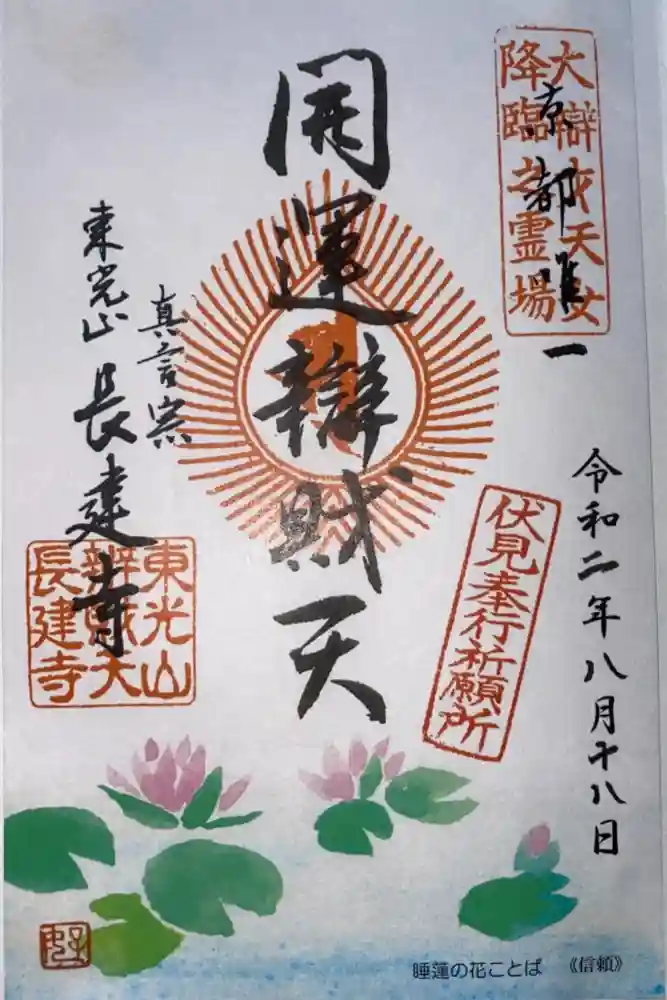 大辯才天女
降臨之霊場
京都唯一
令和二年八月十八日
伏見奉行祈願所
開運辯財天
真言宗
東光山 長建寺
東光山
辨財天
長建寺
睡蓮の花ことば 《信頼》